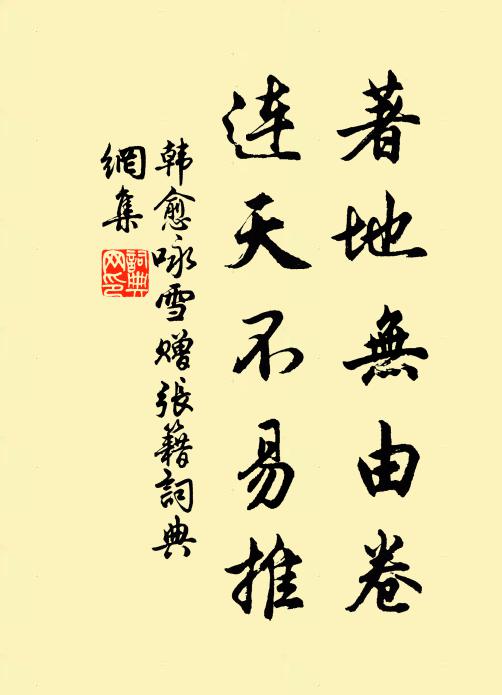 著地無由卷
連天不易推
韩愈咏雪赠張籍詞典
網集
詞典
网印